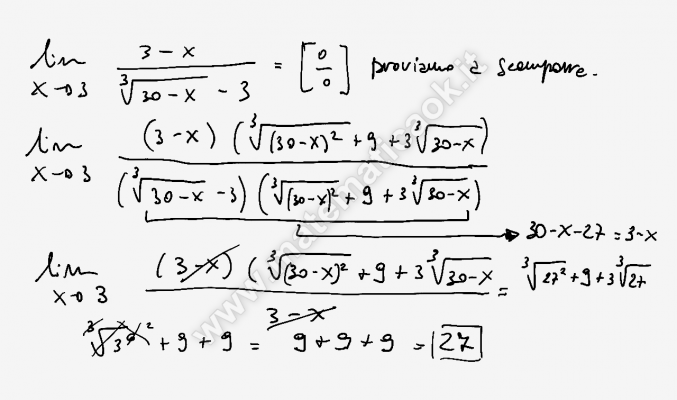 lim x→3 (3-x)/(∛(30-x) - 3) = [0/0] proviamo a scomporre.
lim x→3 ((3-x)(∛((30-x)²) + 9 + 3∛(30-x)))/((∛(30-x) - 3)(∛((30-x)²) + 9 + 3∛(30-x)))
→ 30-x-27 = 3-x
lim x→3 ((3-x)(∛((30-x)²) + 9 + 3∛(30-x)))/(3-x) = ∛(27²) + 9 + 3∛27
+ 9 + 9 = 9 + 9 + 9 = 27
www.matematibook.it